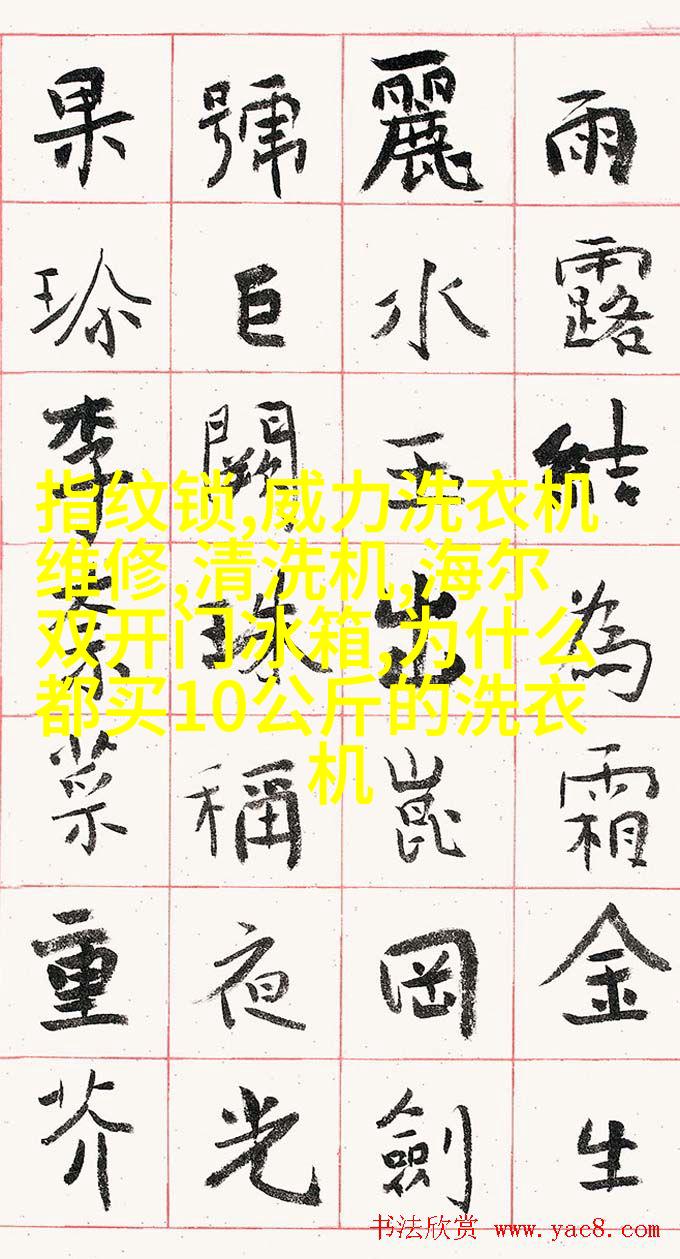 雨露結為霜金生
麗水玉出崑岡劍
號巨闕珠稱夜光
果珎李柰菜重芥
指纹锁,威力洗衣机
维修,清洗机,海尔
双开门冰箱,为什么
都买10公斤的洗衣
机
书法欣赏 www.yac8.com